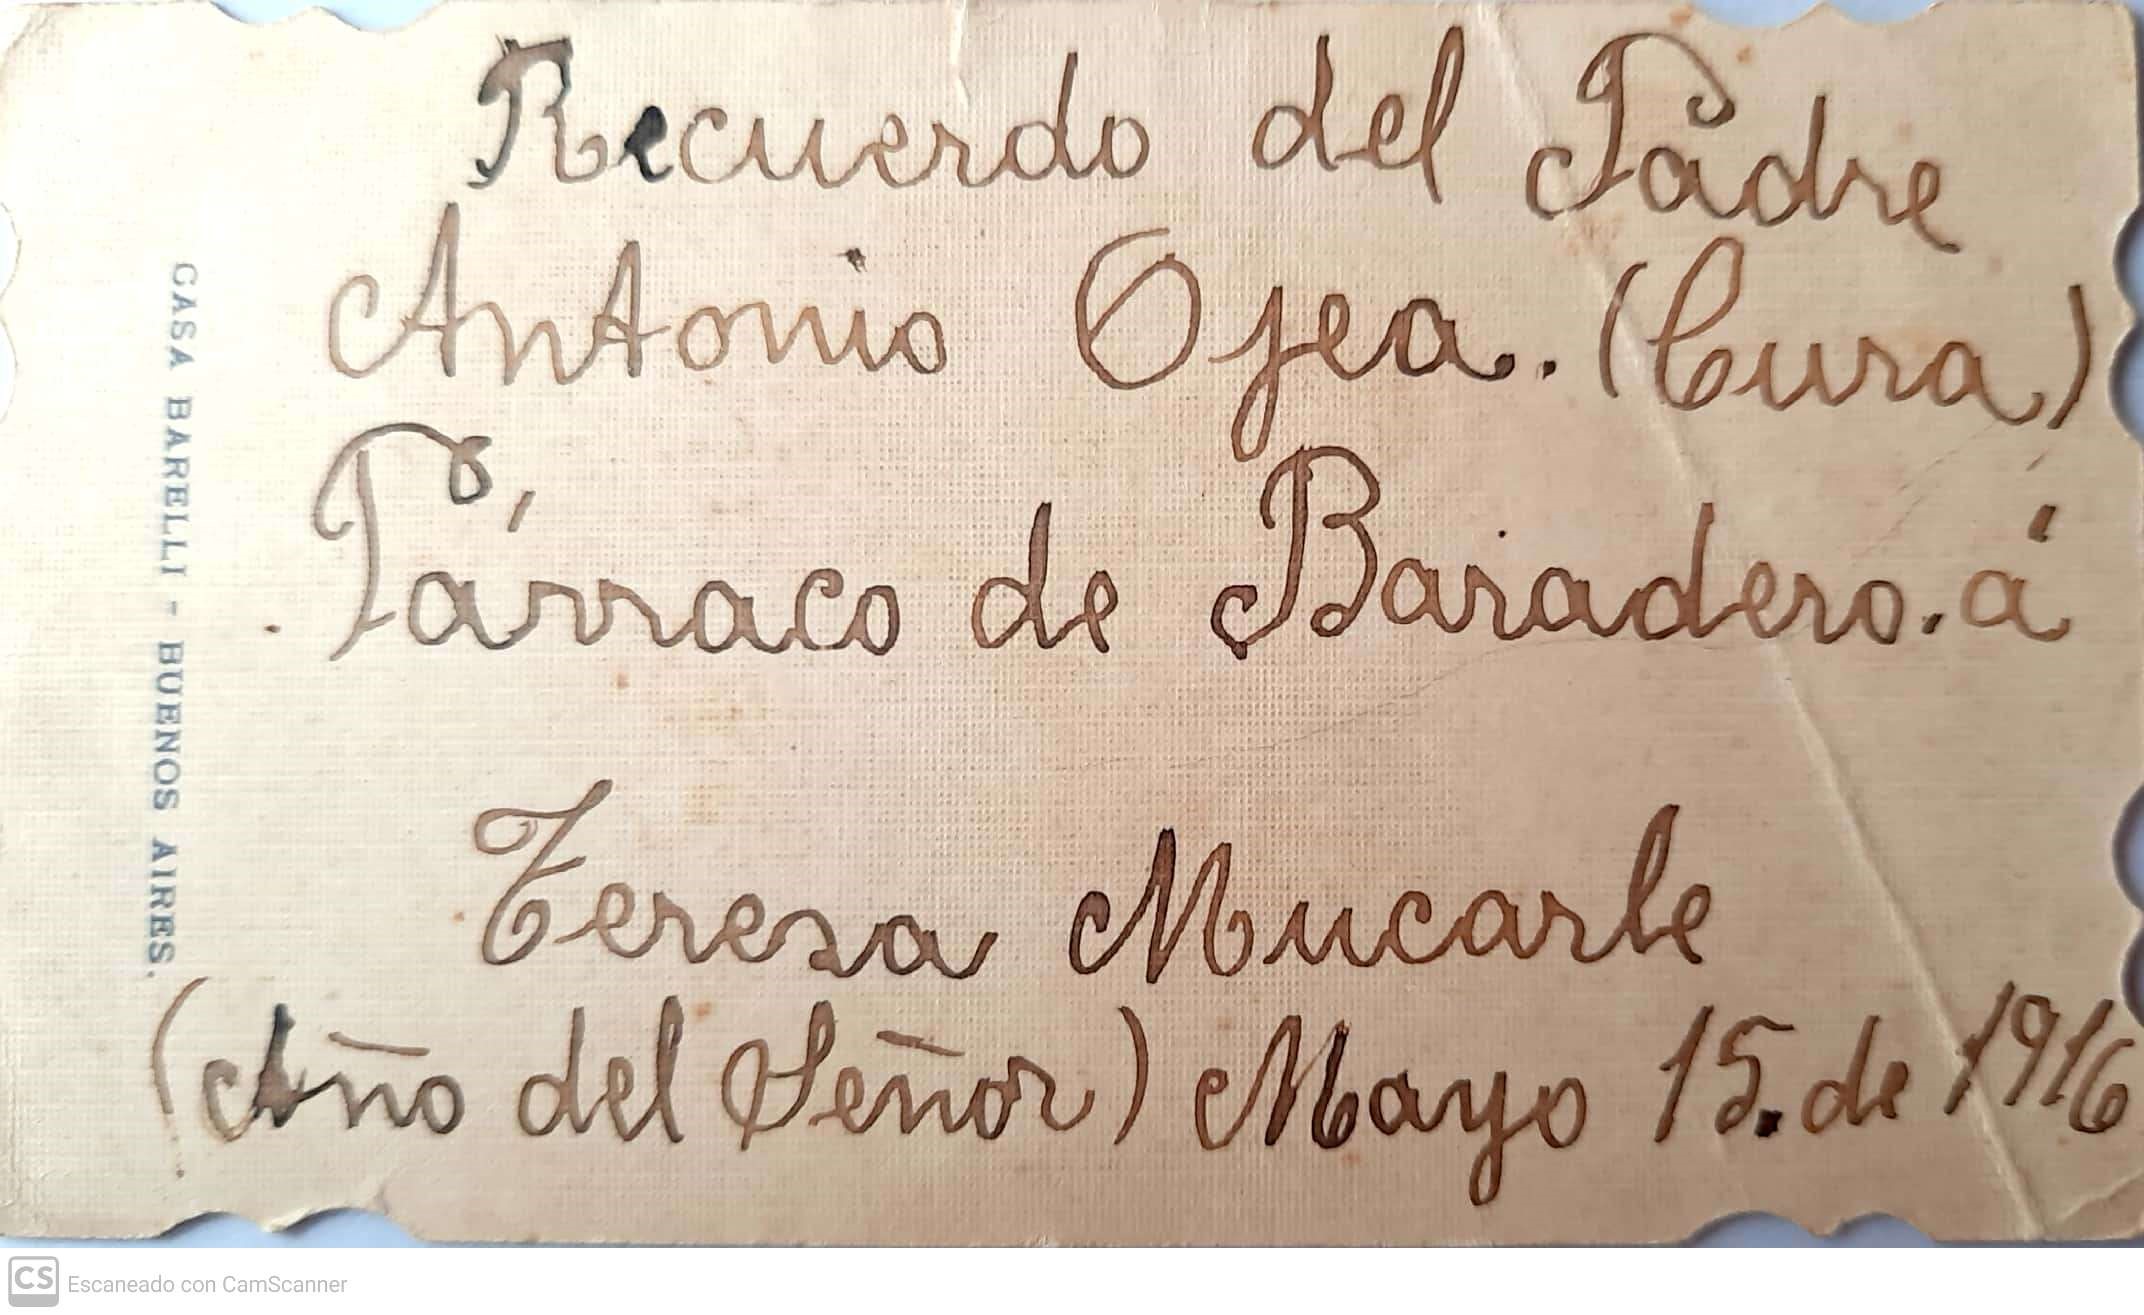 Recuerdo del Padre
Antonio Ojea. (Cura)
Párraco de Baradero. á
Teresa Mucarle
(Año del Señor) Mayo 15. de 1916
CASA BARELLI - BUENOS AIRES.
CS Escaneado con CamScanner